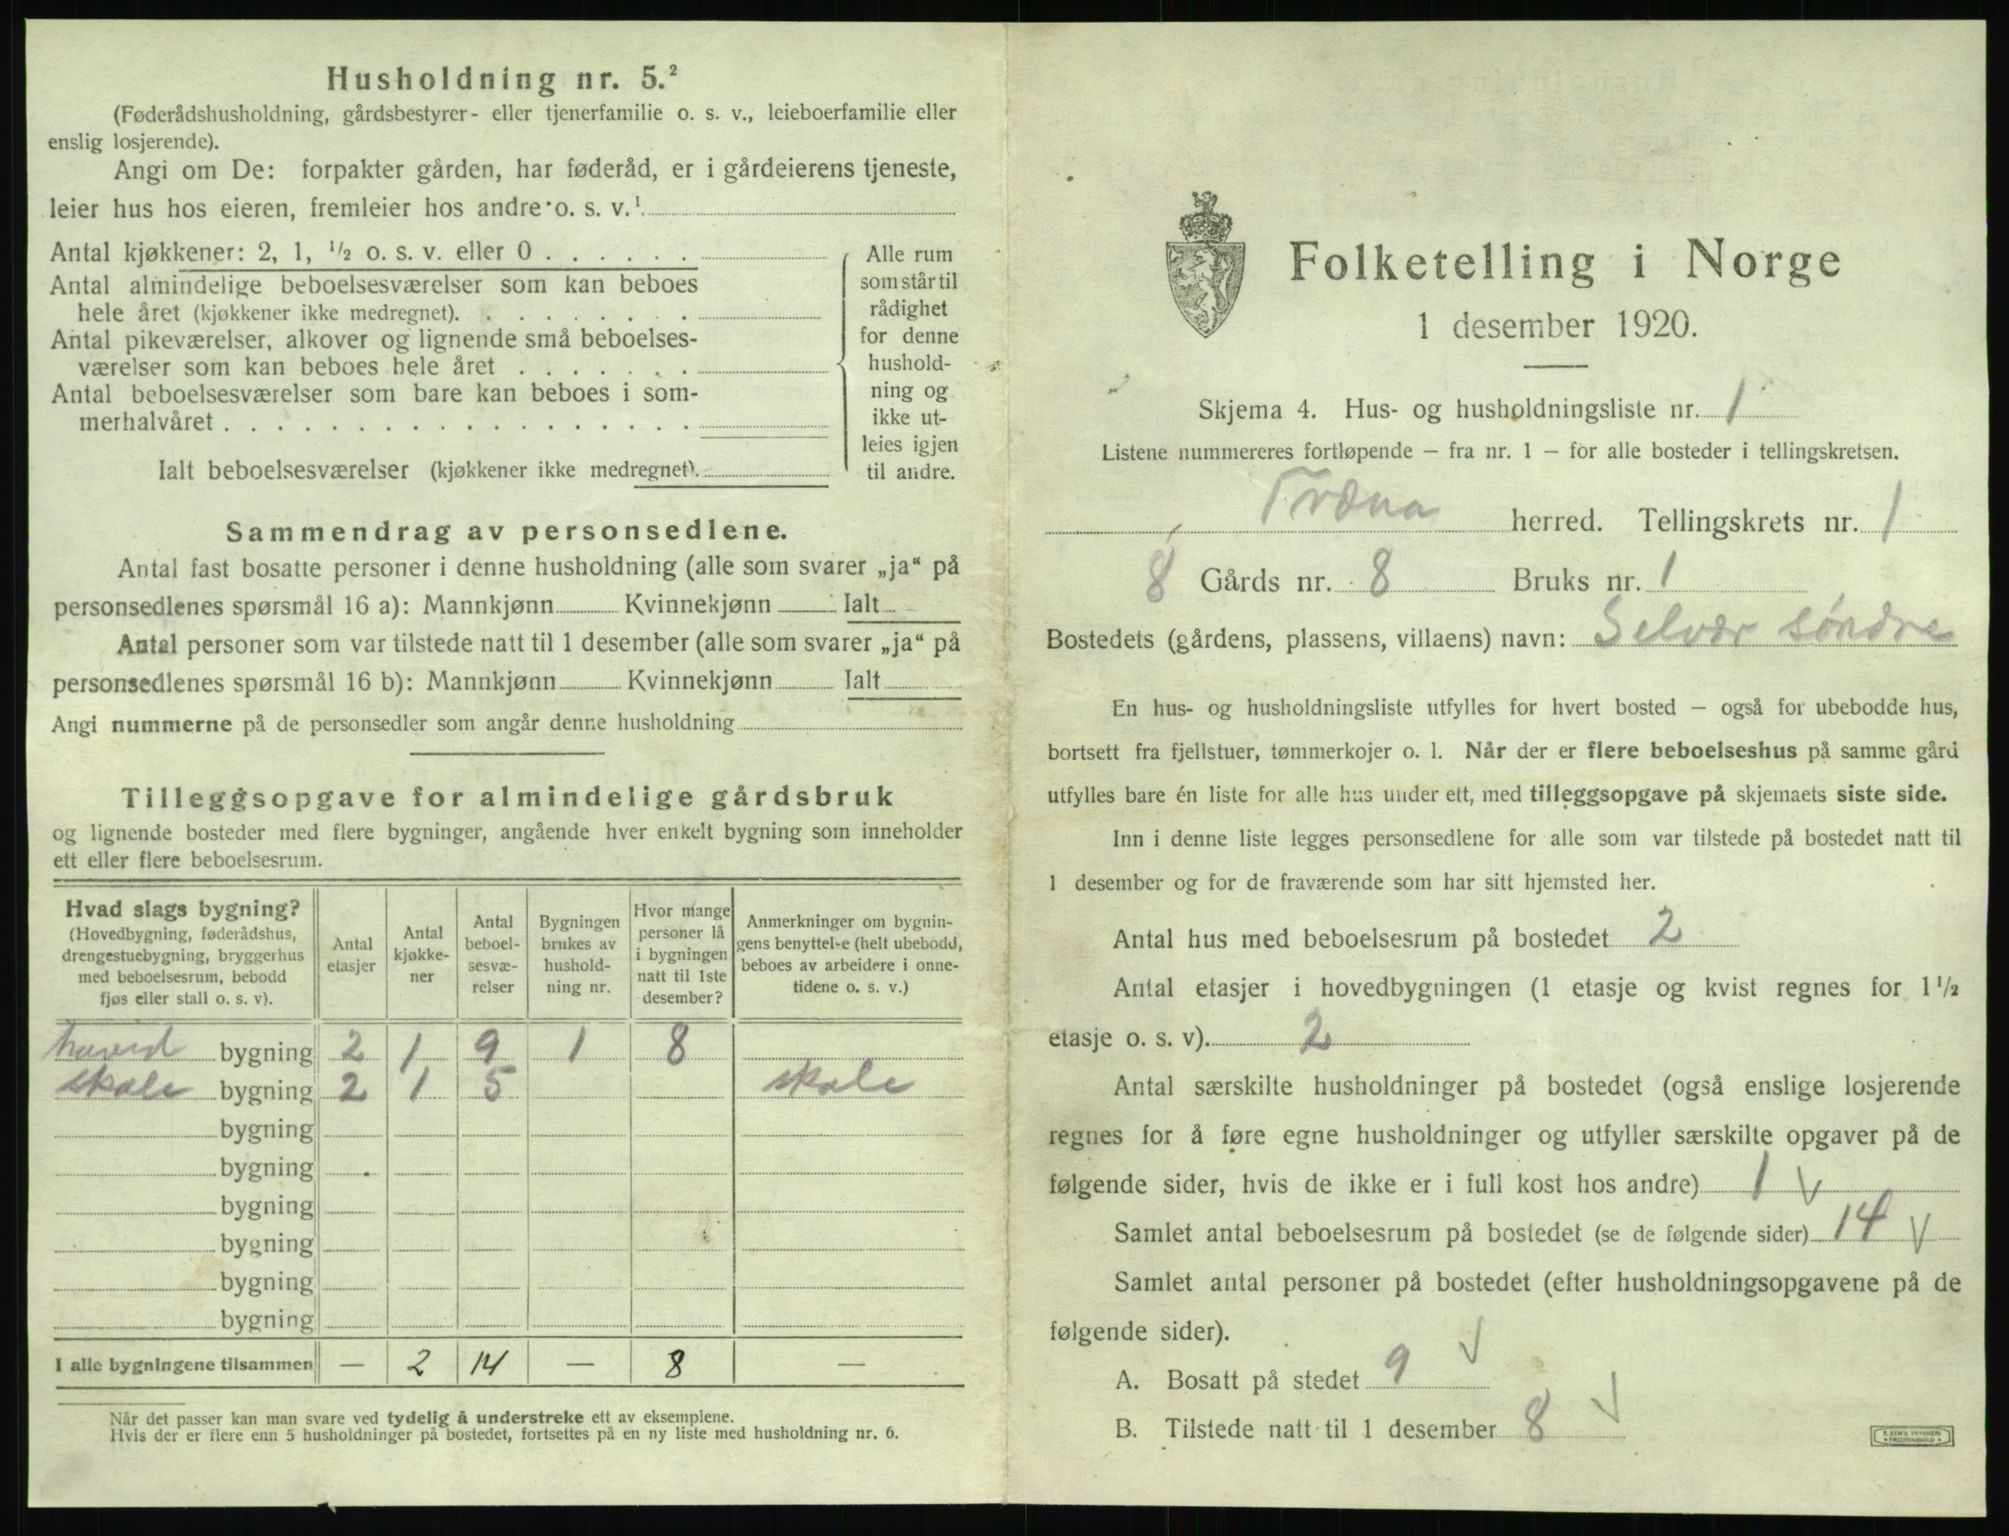 Husholdning nr. 5.²
(Føderådshusholdning, gårdsbestyrer- eller tjenerfamilie o. s. v., leieboerfamilie eller
enslig losjerende).
Angi om De: forpakter gården, har føderåd, er i gårdeierens tjeneste,
leier hus hos eieren, fremleier hos andre o. s. v.¹
Antal kjøkkener: 2, 1, ½ o. s. v. eller 0 . . . . . .
Antal almindelige beboelsesværelser som kan beboes
hele året (kjøkkener ikke medregnet). . . . . . . .
Antal pikeværelser, alkover og lignende små beboelses-
værelser som kan beboes hele året . . . . . . .
Antal beboelsesværelser som bare kan beboes i som-
merhalvåret . . . . . . . . . . . . . . . . . .
Ialt beboelsesværelser (kjøkkener ikke medregnet).
Alle rum
som står til
rådighet
for denne
hushold-
ning og
ikke ut-
leies igjen
til andre.
Sammendrag av personsedlene.
Antal fast bosatte personer i denne husholdning (alle som svarer „ja“ på
personsedlenes spørsmål 16 a): Mannkjønn Kvinnekjønn Ialt
Antal personer som var tilstede natt til 1 desember (alle som svarer „ja“ på
personsedlenes spørsmål 16 b): Mannkjønn Kvinnekjønn Ialt
Angi nummerne på de personsedler som angår denne husholdning
Tilleggsopgave for almindelige gårdsbruk
og lignende bosteder med flere bygninger, angående hver enkelt bygning som inneholder
ett eller flere beboelsesrum.
Hvad slags bygning?
(Hovedbygning, føderådshus,
drengestuebygning, bryggerhus
med beboelsesrum, bebodd
fjøs eller stall o. s. v).
Antal
etasjer
Antal
kjøkke-
ner
Antal
beboel-
sesvæ-
relser
Bygningen
brukes av
hushold-
ning nr.
Hvor mange
personer lå
i bygningen
natt til 1ste
desember?
Anmerkninger om bygnin-
gens benyttelse (helt ubebodd,
beboes av arbeidere i onne-
tidene o. s. v.)
hoved bygning 2 1 9 1 8
skole bygning 2 1 5 skole
bygning
bygning
bygning
bygning
bygning
bygning
I alle bygningene tilsammen — 2 14 — 8 —
Når det passer kan man svare ved tydelig å understreke ett av eksemplene.
Hvis der er flere enn 5 husholdninger på bostedet, fortsettes på en ny liste med husholdning nr. 6.
Folketelling i Norge
1 desember 1920.
Skjema 4. Hus- og husholdningsliste nr. 1
Listene nummereres fortløpende — fra nr. 1 — for alle bosteder i tellingskretsen.
Træna herred. Tellingskrets nr. 1
8 Gårds nr. 8 Bruks nr. 1
Bostedets (gårdens, plassens, villaens) navn: Selvær søndre
En hus- og husholdningsliste utfylles for hvert bosted — også for ubebodde hus,
bortsett fra fjellstuer, tømmerkojer o. l. Når der er flere beboelseshus på samme gård
utfylles bare én liste for alle hus under ett, med tilleggsopgave på skjemaets siste side.
Inn i denne liste legges personsedlene for alle som var tilstede på bostedet natt til
1 desember og for de fraværende som har sitt hjemsted her.
Antal hus med beboelsesrum på bostedet 2
Antal etasjer i hovedbygningen (1 etasje og kvist regnes for 1½
etasje o. s. v). 2
Antal særskilte husholdninger på bostedet (også enslige losjerende
regnes for å føre egne husholdninger og utfyller særskilte opgaver på de
følgende sider, hvis de ikke er i full kost hos andre) 1 √
Samlet antal beboelsesrum på bostedet (se de følgende sider) 14 √
Samlet antal personer på bostedet (efter husholdningsopgavene på de
følgende sider).
A. Bosatt på stedet 9 √
B. Tilstede natt til 1 desember 8 √